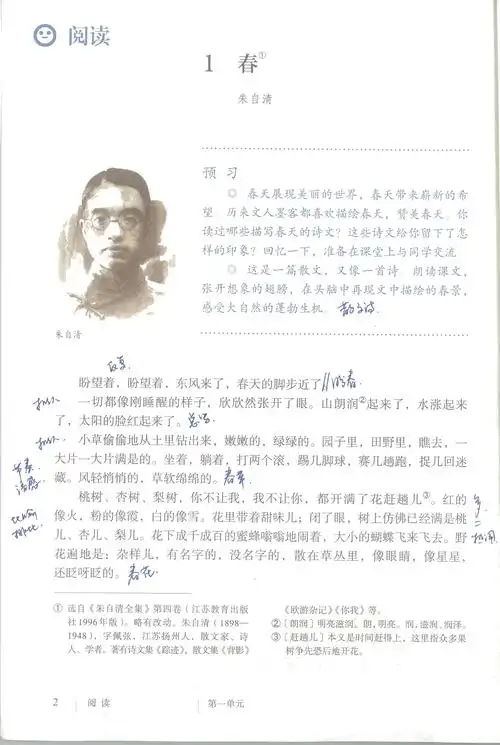 阅读
1 春①
朱自清
预习
◎ 春天展现美丽的世界，春天带来崭新的希
望 历来文人墨客都喜欢描绘春天，赞美春天。你
读过哪些描写春天的诗文？这些诗文给你留下了怎
样的印象？回忆一下，准备在课堂上与同学交流
◎ 这是一篇散文，又像一首诗 朗读课文，
张开想象的翅膀，在头脑中再现文中描绘的春景，
感受大自然的蓬勃生机
朱自清
反复
盼望着，盼望着，东风来了，春天的脚步近了 盼春
拟人 一切都像刚睡醒的样子，欣欣然张开了眼。山朗润②起来了，水涨起来
了，太阳的脸红起来了。总写
拟人 小草偷偷地从土里钻出来，嫩嫩的，绿绿的。园子里，田野里，瞧去，一
大片一大片满是的。坐着，躺着，打两个滚，踢几脚球，赛几趟跑，捉几回迷
藏。风轻悄悄的，草软绵绵的。春草
桃树、杏树、梨树，你不让我，我不让你，都开满了花赶趟儿③。红的
像火，粉的像霞，白的像雪。花里带着甜味儿；闭了眼，树上仿佛已经满是桃
儿、杏儿、梨儿。花下成千成百的蜜蜂嗡嗡地闹着，大小的蝴蝶飞来飞去。野
花遍地是：杂样儿，有名字的，没名字的，散在草丛里，像眼睛，像星星，
还眨呀眨的。春花
① 选自《朱自清全集》第四卷（江苏教育出版
社1996年版）。略有改动。朱自清（1898—
1948），字佩弦，江苏扬州人，散文家、诗
人、学者。著有诗文集《踪迹》，散文集《背影》
《欧游杂记》《你我》等。
②〔朗润〕明亮滋润。朗，明亮。润，滋润、润泽。
③〔赶趟儿〕本义是时间赶得上，这里指众多果
树争先恐后地开花。
2 阅读 第一单元